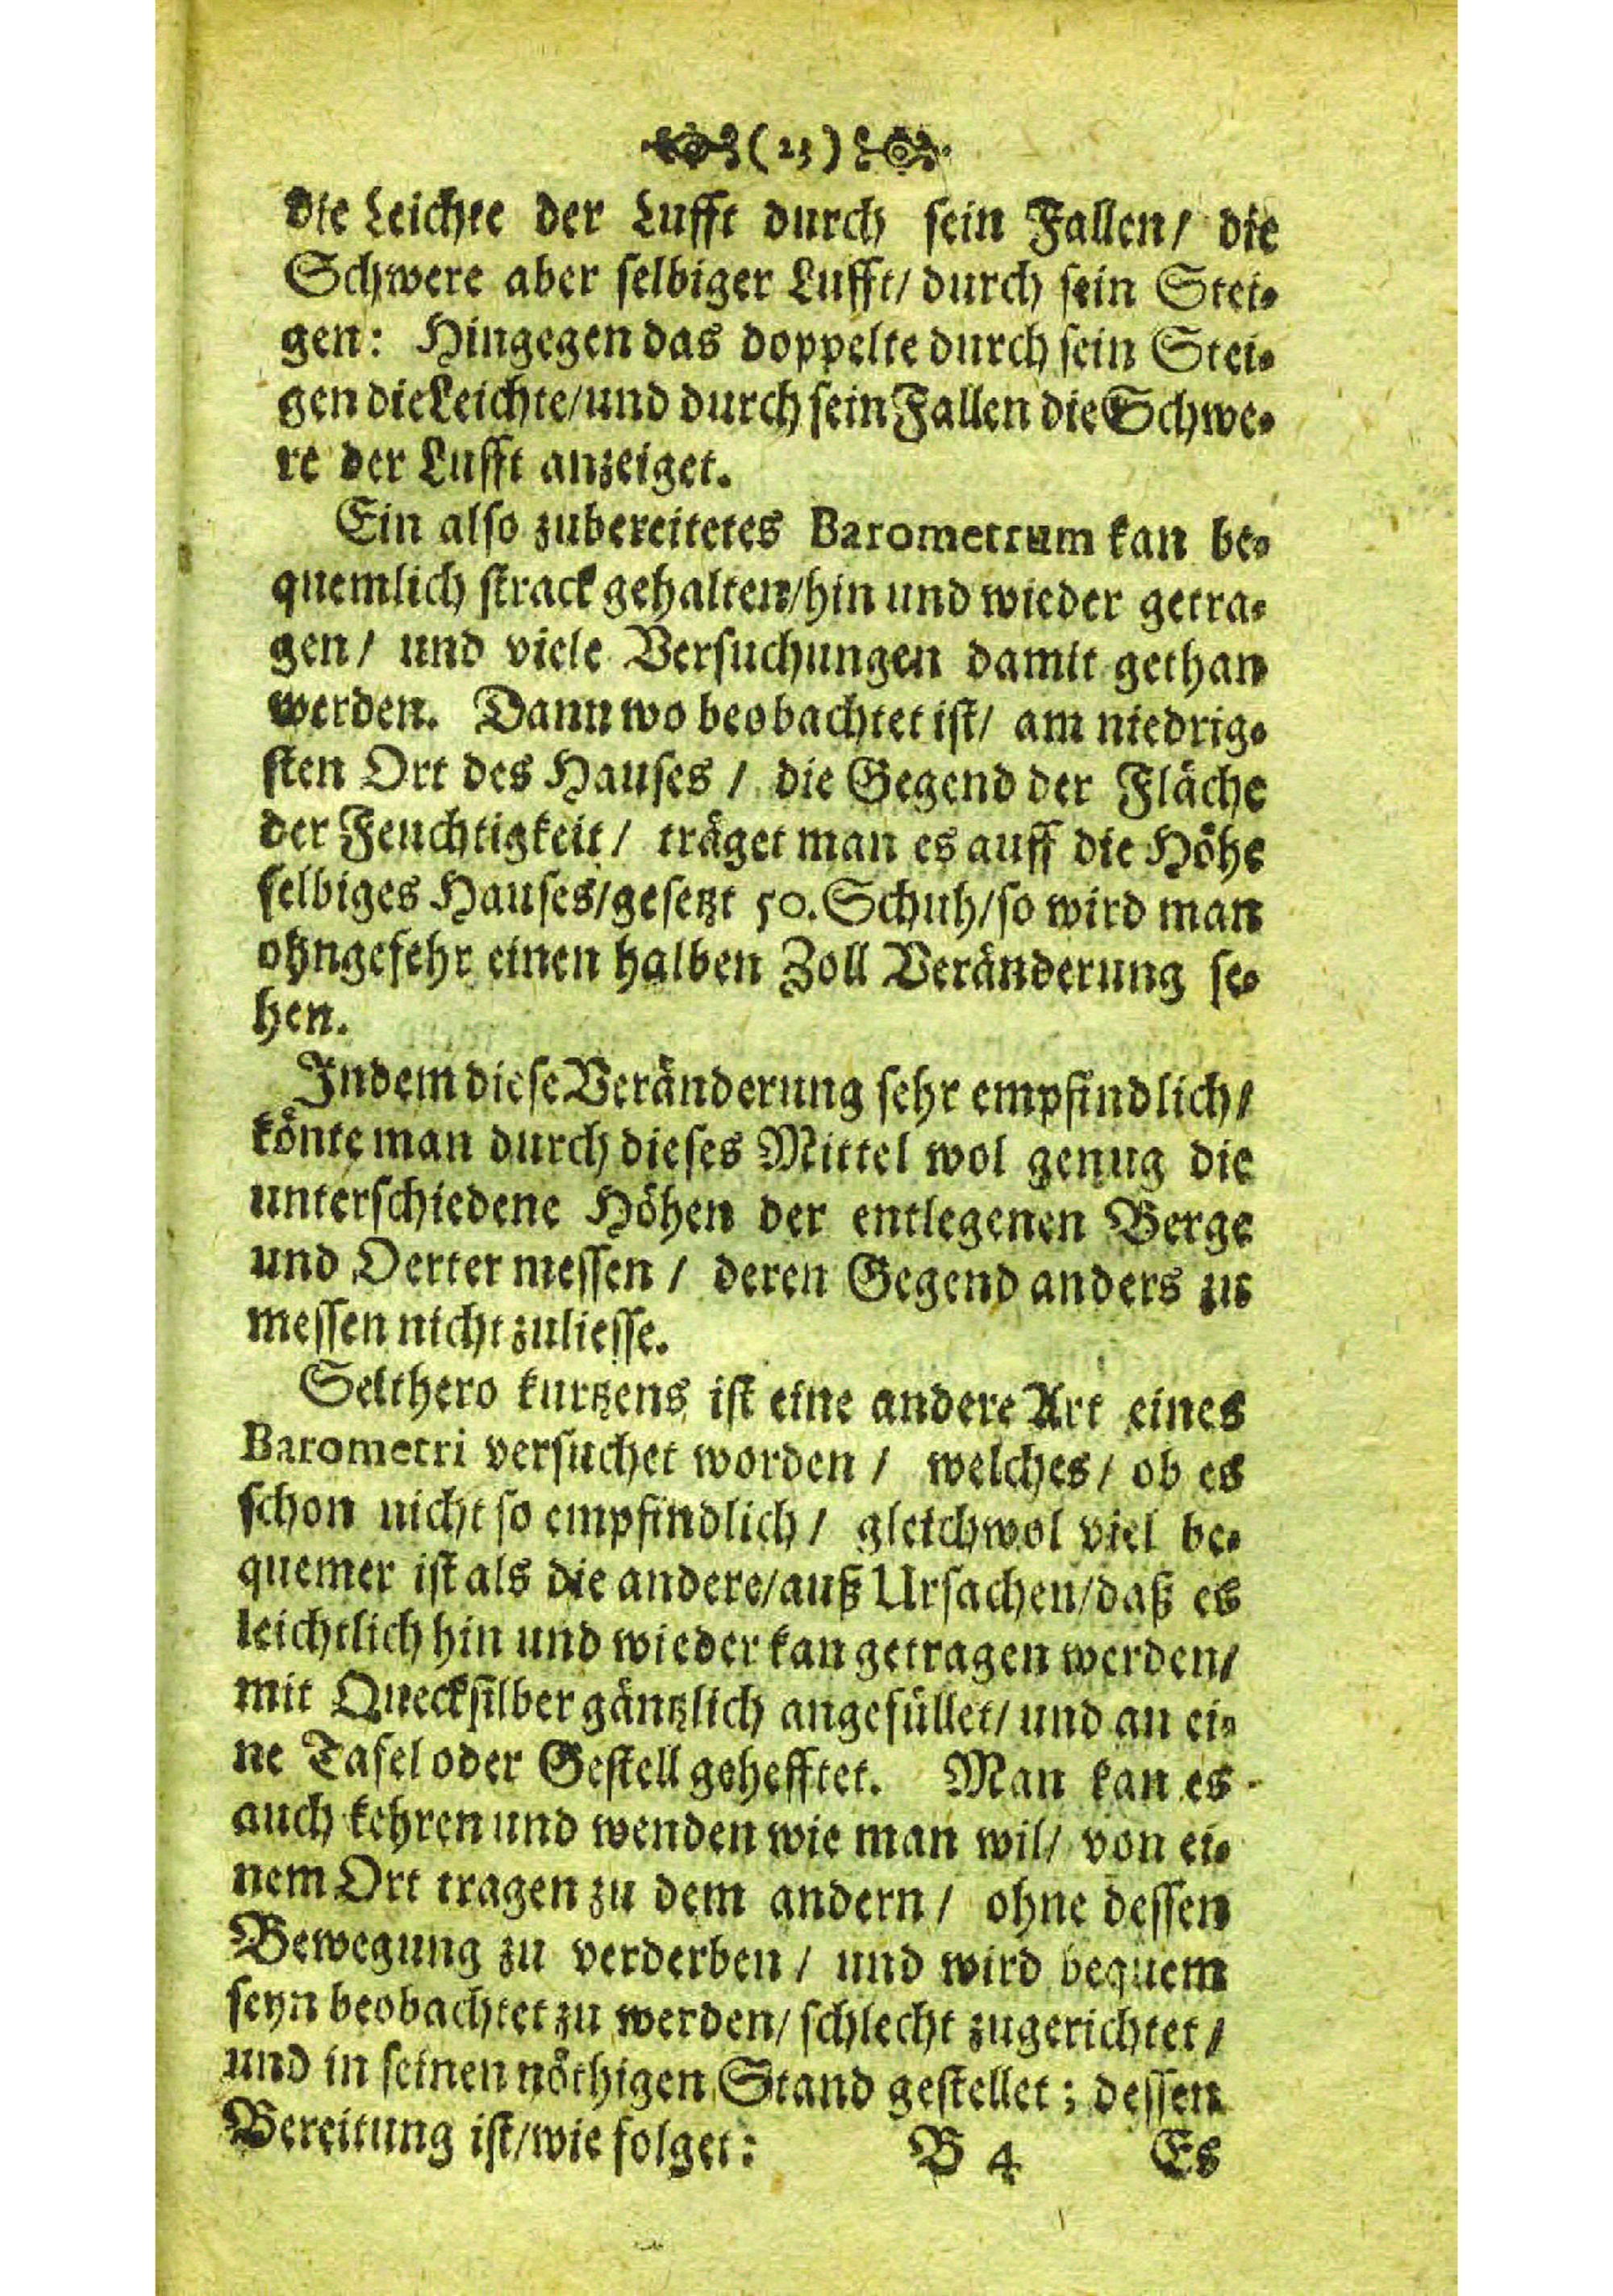 (23)
die Leichte der Lufft durch sein Fallen/ die
Schwere aber selbiger Lufft/ durch sein Stei-
gen: Hingegen das doppelte durch sein Stei-
gen die Leichte/ und durch sein Fallen die Schwe-
re der Lufft anzeiget.
Ein also zubereitetes Barometrum kan be-
quemlich strack gehalten/ hin und wieder getra-
gen/ und viele Versuchungen damit gethan
werden. Dann wo beobachtet ist/ am niedrig-
sten Ort des Hauses/ die Gegend der Fläche
der Feuchtigkeit/ träget man es auff die Höhe
selbiges Hauses/ gesetzt 50. Schuh/ so wird man
ohngefehr einen halben Zoll Veränderung se-
hen.
Indem diese Veränderung sehr empfindlich/
könte man durch dieses Mittel wol genug die
unterschiedene Höhen der entlegenen Berge
und Oerter messen/ deren Gegend anders zu
messen nicht zuliesse.
Seithero kurtzens ist eine andere Art eines
Barometri versuchet worden/ welches/ ob es
schon nicht so empfindlich/ gleichwol viel be-
quemer ist als die andere/ auß Ursachen/ daß es
leichtlich hin und wieder kan getragen werden/
mit Quecksilber gäntzlich angefüllet/ und an ei-
ne Tafel oder Gestell gehefftet. Man kan es
auch kehren und wenden wie man wil/ von ei-
nem Ort tragen zu dem andern/ ohne dessen
Bewegung zu verderben/ und wird bequem
seyn beobachtet zu werden/ schlecht zugerichtet/
und in seinen nöthigen Stand gestellet; dessen
Bereitung ist/ wie folget:
B 4 Es